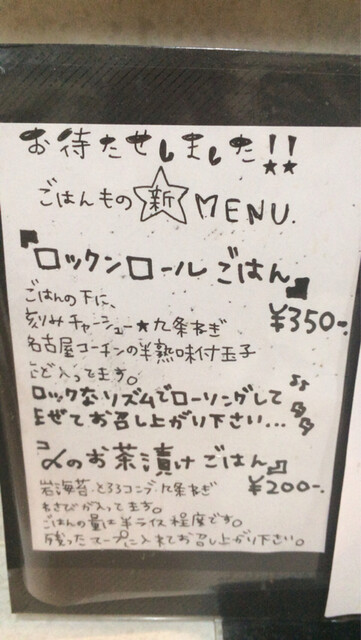 お待たせしました!!
ごはんもの 新 MENU.
『ロックンロールごはん』
ごはんの下に、
¥350-.
刻みチャーシュー★九条ねぎ
名古屋コーチンの半熟味付玉子
など入ってます。
ロックなリズムでローリングして
まぜてお召し上がり下さい...
〆のお茶漬けごはん』
岩海苔、とろろコンブ、九条ねぎ
¥200-.
わさびが入ってます。
ごはんの量は半ライス程度です。
残ったスープに入れてお召し上がり下さい。